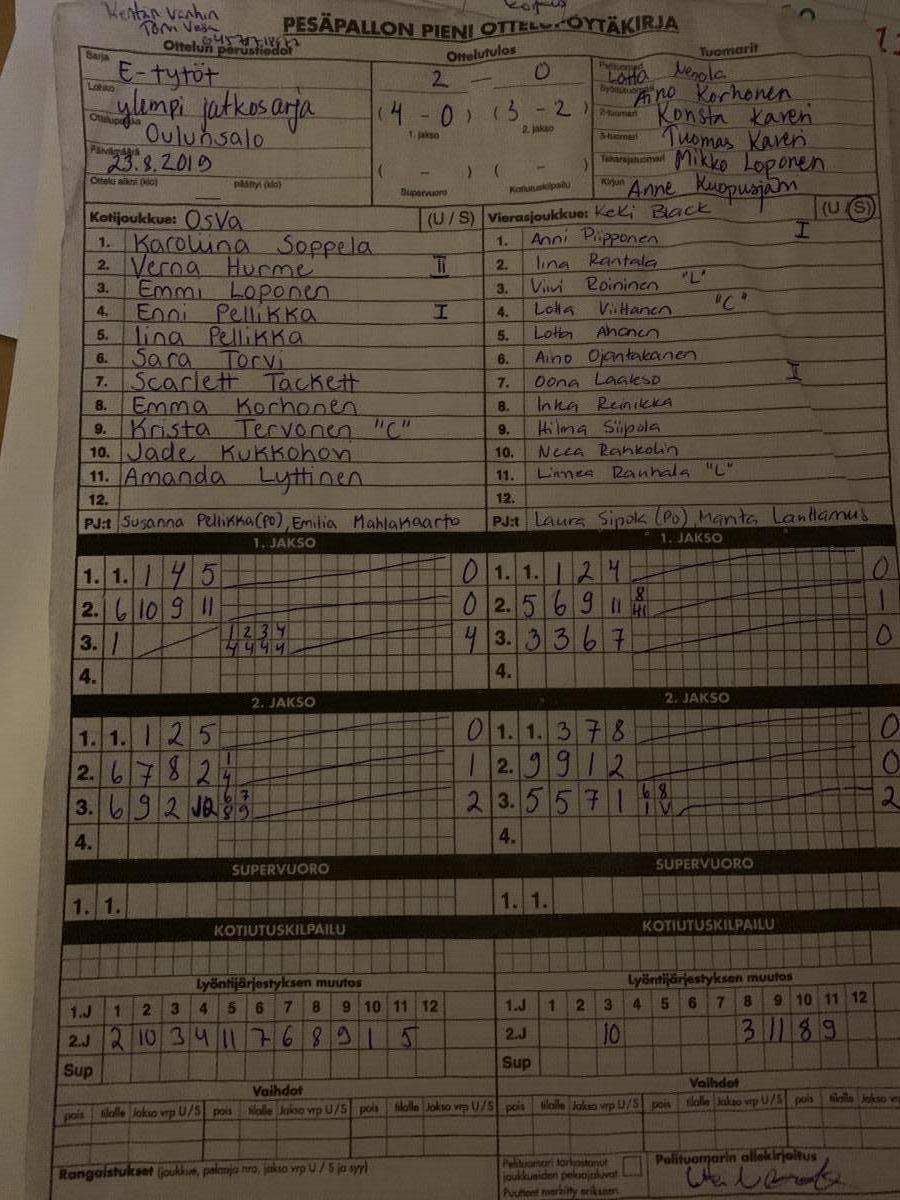 Kentän vanhin
Tomi Vesa
PESÄPALLON PIENI OTTELUPÖYTÄKIRJA
Ottelun perustiedot
Ottelutulos
Tuomarit
Sarja E-tytöt
Lohko ylempi jatkosarja
Ottelupaikka Oulunsalo
Päivämäärä 23.8.2019
Ottelu alkoi (klo) päättyi (klo)
2 - 0
(4 - 0) (3 - 2)
1. jakso 2. jakso
( - ) ( - )
Supervuoro Kotiutuskilpailu
Pelituomari Lotta Nevola
Syöttötuomari Aino Korhonen
2-tuomari Konsta Kaveri
3-tuomari Tuomas Kaveri
Takarajatuomari Mikko Loponen
Kirjuri Anne Kuopusjärvi
Kotijoukkue: OsVa (U / S)
1. Karoliina Soppela
2. Verna Hurme II
3. Emmi Loponen
4. Enni Pellikka I
5. Iina Pellikka
6. Sara Torvi
7. Scarlett Tackett
8. Emma Korhonen
9. Krista Tervonen "C"
10. Jade Kukkohon
11. Amanda Lyttinen
12.
PJ:t Susanna Pellikka (PO), Emilia Mahlakaarto
Vierasjoukkue: KeKi Black (U / S)
1. Anni Piipponen I
2. Iina Rantala
3. Viivi Roininen "L"
4. Lotta Viittanen "C"
5. Lotta Ahonen
6. Aino Ojantakanen
7. Oona Laakso I
8. Inka Reinikka
9. Hilma Siipola
10. Neea Rahkolin
11. Linnea Rauhala "L"
12.
PJ:t Laura Sipola (PO), Manta Lanttamus
1. JAKSO
1. 1. 1 4 5 0
2. 6 10 9 11 0
3. 1 1 2 3 4 4
4 4 4 4
4.
1. JAKSO
1. 1. 1 2 4 0
2. 5 6 9 11 8 1
3. 3 3 6 7 0
4.
2. JAKSO
1. 1. 1 2 5 0
2. 6 7 8 2 1 1
4
3. 6 9 2 10 6 7 2
8 9
4.
2. JAKSO
1. 1. 3 7 8 0
2. 9 9 1 2 0
3. 5 5 7 1 6 8 2
1 V
4.
SUPERVUORO
1. 1.
SUPERVUORO
1. 1.
KOTIUTUSKILPAILU
KOTIUTUSKILPAILU
Lyöntijärjestyksen muutos
1.J 1 2 3 4 5 6 7 8 9 10 11 12
2.J 2 10 3 4 11 7 6 8 9 1 5
Sup
Lyöntijärjestyksen muutos
1.J 1 2 3 4 5 6 7 8 9 10 11 12
2.J 10 3 11 8 9
Sup
Vaihdot
pois tilalle Jakso vrp U/S pois tilalle Jakso vrp U/S pois tilalle Jakso vrp U/S
Vaihdot
pois tilalle Jakso vrp U/S pois tilalle Jakso vrp U/S pois tilalle Jakso vrp
Rangaistukset (joukkue, pelaaja nro, jakso vrp U / S ja syy)
Pelituomari tarkastanut
joukkueiden pelaajaluvat
Puutteet merkitty erikseen.
Pelituomarin allekirjoitus